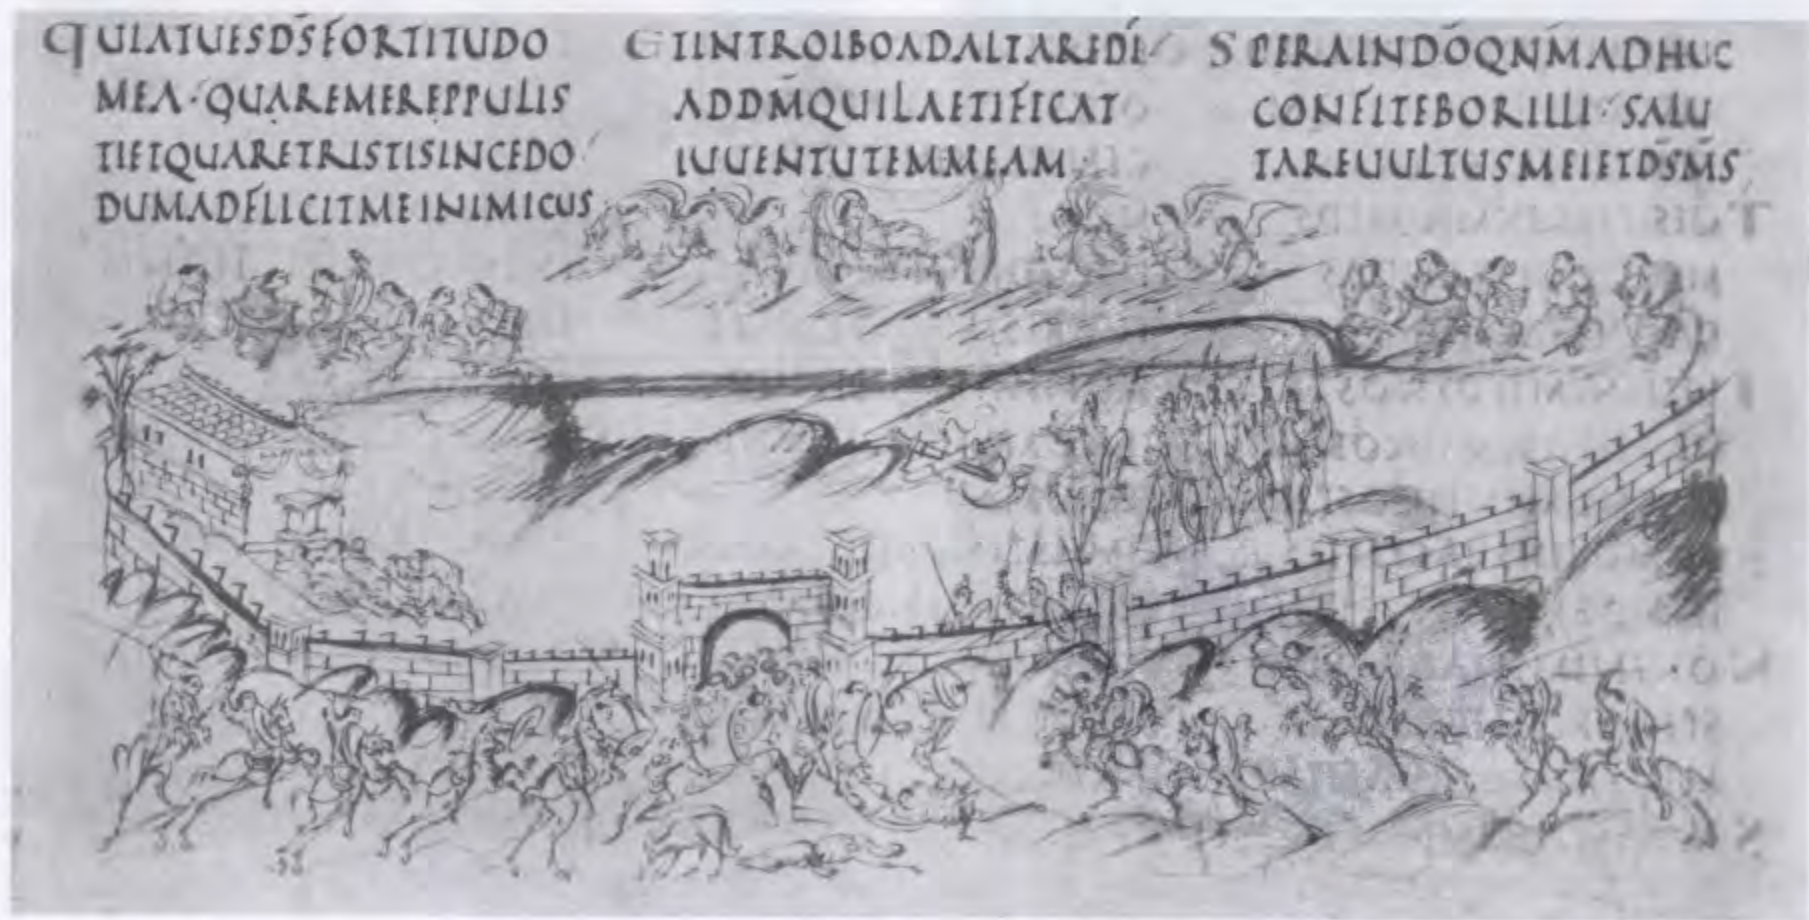 QUIATUESDS̄FORTITUDO
MEA · QUAREMEREPPULIS
TIETQUARETRISTISINCEDO
DUMADFLICITMEINIMICUS
ETINTROIBOADALTAREDĪ
ADDM̄QUILAETIFICAT
IUUENTUTEMMEAM ·
SPERAINDŌQN̄MADHUC
CONFITEBORILLI · SALU
TAREUULTUSMEIETDS̄MS̄